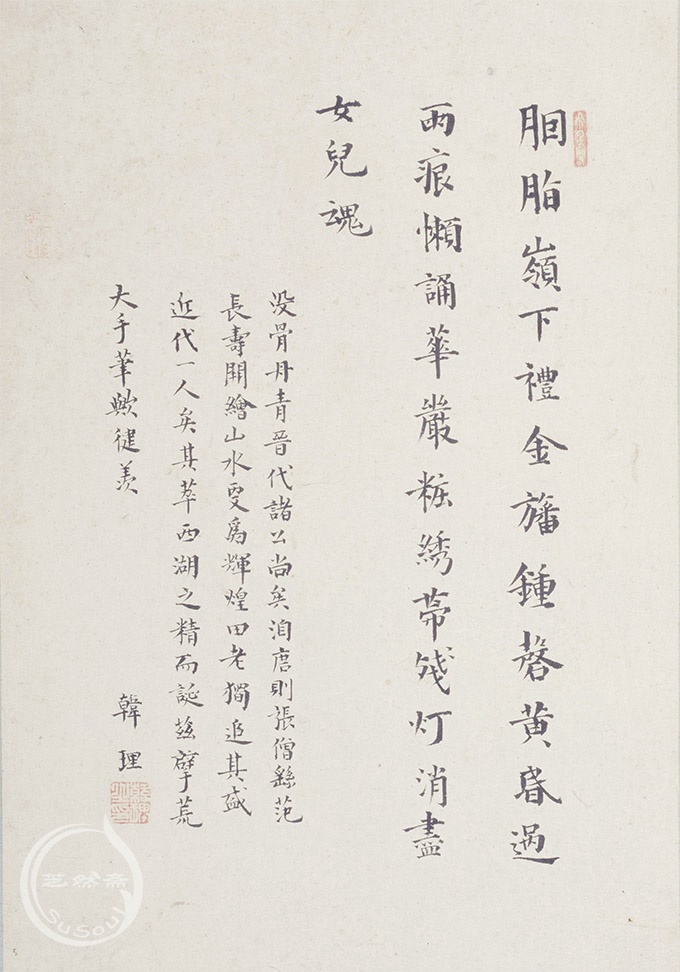 胭脂嶺下禮金旛鍾磬黄昏過
雨痕懶誦華嚴粧綉幕残灯消盡
女兒魂
没骨丹青晉代諸公尚矣洎唐則張僧繇范
長壽開繪山水更爲輝煌田老獨追其盛
近代一人矣其萃西湖之精而誕兹擘荒
大手筆歟健羡
韓理
芝然斋
SuSoul